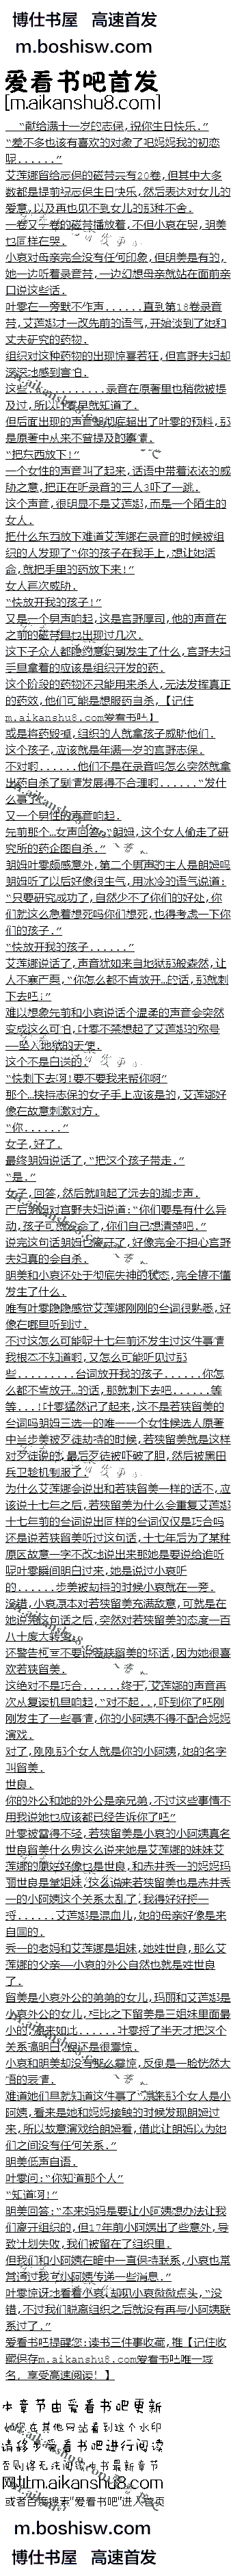 博仕书屋 高速首发
m.boshisw.com
爱看书吧首发
[m.aikanshu8.com]
“献给满十一岁的志保,祝你生日快乐.”
“差不多也该有喜欢的对象了吧妈妈我的初恋
呢......”
艾莲娜留给志保的磁带共有20卷,但其中大多
数都是提前祝志保生日快乐,然后表达对女儿的
爱意,以及再也见不到女儿的那种不舍.
一卷又一卷的磁带播放着,不但小哀在哭,明美
也同样在哭.
小哀对母亲完全没有任何印象,但明美是有的,
她一边听着录音带,一边幻想母亲就站在面前亲
口说这些话.
叶零在一旁默不作声......直到第18卷录音
带,艾莲娜才一改先前的语气,开始谈到了她和
丈夫研究的药物.
组织对这种药物的出现惊喜若狂,但宫野夫妇却
深深地感到害怕.
这些,..........录音在原著里也稍微被提
及过,所以叶零早就知道了.
但后面出现的声音就彻底超出了叶零的预料,那
是原著中从来不曾提及的剧情.
“把东西放下!”
一个女性的声音叫了起来,话语中带着浓浓的威
胁之意,把正在听录音的三人3吓了一跳.
这个声音,很明显不是艾莲娜,而是一个陌生的
女人.
把什么东西放下难道艾莲娜在录音的时候被组
织的人发现了“你的孩子在我手上,想让她活
命,就把手里的药放下来!”
女人再次威胁.
“快放开我的孩子!”
又是一个男声响起,这是宫野厚司,他的声音在
之前的磁带里也出现过几次.
这下子众人都隐约意识到发生了什么,宫野夫妇
手里拿着的应该是组织开发的药.
这个阶段的药物还只能用来杀人,无法发挥真正
的药效,他们可能是想服药自杀,【记住
m.aikanshu8.com爱看书吧】
或是将药毁掉,组织的人就拿孩子威胁他们.
这个孩子,应该就是年满一岁的宫野志保.
不对啊......他们不是在录音吗怎么突然就拿
出药自杀了剧情发展得不合理啊......“发什
么事了”
又一个男性的声音响起.
先前那个...女声回答,“朗姆,这个女人偷走了研
究所的药企图自杀.”
朗姆叶零颇感意外,第二个男声的主人是朗姆吗
朗姆听了以后好像很生气,用冰冷的语气说道:
“只要研究成功了,自然少不了你们的好处,你
们就这么急着想死吗你们想死,也得考虑一下你
们的孩子.”
“快放开我的孩子......”
艾莲娜说话了,声音犹如来自地狱那般森然,让
人不寒而栗,“你怎么都不肯放开…的话,那就刺
下去吧!”
难以想象先前和小哀说话个温柔的声音会突然
变成这么可怕,叶零不禁想起了艾莲娜的称号
——坠入地狱的天使.
这个不是白送的.
“快刺下去啊!要不要我来帮你啊”
那个…挟持志保的女子手上应该是的,艾莲娜好
像在故意刺激对方.
“你......”
女子,好了.
最终朗姆说话了,“把这个孩子带走.”
“是.”
女子,回答,然后就响起了远去的脚步声.
尔后朗姆对宫野夫妇说道:“你们要是有什么异
动,孩子可就没命了,你们自己想清楚吧.”
说完这句话朗姆也离开了,好像完全不担心宫野
夫妇真的会自杀.
明美和小哀还处于彻底失神的状态,完全搞不懂
发生了什么.
唯有叶零隐隐感觉艾莲娜刚刚的台词很熟悉,好
像在哪里听到过.
不过这怎么可能呢十七年前还发生过这件事情
我根本不知道啊,又怎么可能听见过那
些..........台词放开我的孩子......你怎
么都不肯放开…的话,那就刺下去吧......等
等...!叶零猛然记了起来,这不是若狭留美的
台词吗朗姆三选一的唯一一个女性候选人原著
中当步美被歹徒劫持的时候,若狭留美就是这样
对歹徒说的,最后歹徒被吓破了胆,然后被黑田
兵卫趁机制服了.
为什么艾莲娜会说出和若狭留美一样的话不,应
该说十七年之后,若狭留美为什么会重复艾莲娜
十七年前的台词说出同样的台词仅仅是巧合吗
还是说若狭留美听过这句话,十七年后为了某种
原因故意一字不改地说出来那她是要说给谁听
呢叶零瞬间明白过来,她是说过小哀听
的......步美被劫持的时候小哀就在一旁.
没错,小哀原本对若狭留美充满敌意,可就是在
她说完这句话之后,突然对若狭留美的态度一百
八十度大转变.
还警告柯南不要说若狭留美的坏话,因为她很喜
欢若狭留美.
这绝对不是巧合......终于,艾莲娜的声音再
次从复读机里响起,“对不起..,吓到你了吧刚
刚发生了一些事情,你的小阿姨不得不配合妈妈
演戏.
对了,刚刚那个女人就是你的小阿姨,她的名字
叫留美.
世良.
你的外公和她的外公是亲兄弟,不过这些事情不
用我说她也应该都已经告诉你了吧”
叶零被雷得不轻,若狭留美是小哀的小阿姨真名
世良留美什么鬼这么说来她是艾莲娜的妹妹艾
莲娜的原姓好像也是世良,和赤井秀一的妈妈玛
丽世良是堂姐妹,这么说来若狭留美也是赤井秀
一的小阿姨这个关系太乱了,我得好好捋一
捋......艾莲娜是混血儿,她的母亲好像是来
自国的.
秀一的老妈和艾莲娜是姐妹,她姓世良,那么艾
莲娜的父亲——小哀的外公自然也就是姓世良
了.
留美是小哀外公的弟弟的女儿,玛丽和艾莲娜是
小哀外公的女儿,相比之下留美是三姐妹里面最
小的,原来如此......叶零捋了半天才把这个
关系搞明白,但还是很震惊.
小哀和明美却没有那么震惊,反倒是一脸恍然大
悟的表情.
难道她们早就知道这件事了“原来那个女人是小
阿姨,看来是她和妈妈接触的时候发现朗姆过
来,所以故意演戏给朗姆看,借此让朗姆以为她
们之间没有任何关系.”
明美低声自语.
叶零问:“你知道那个人”
“知道啊!”
明美回答:“本来妈妈是要让小阿姨想办法让我
们离开组织的,但17年前小阿姨出了些意外,导
致计划失败,我们被留在了组织里.
但我们和小阿姨在暗中一直保持联系,小哀也常
常通过我和小阿姨传递一些消息.”
叶零惊讶地看着小哀,却见小哀微微点头,“没
错,不过我们脱离组织之后就没有再与小阿姨联
系过了.”
爱看书吧提醒您:读书三件事收藏,推【记住收
藏保存m.aikanshu8.com爱看书吧唯一域
名,享受高速阅读！】
本章节由爱看书吧更新
如您在其他网站看到这个水印
请移步爱看书吧进行阅读
否则将无法阅读本书最新章节
网址m.aikanshu8.com
或者百度搜索“爱看书吧”进入首页
m.boshisw.com
博仕书屋 高速首发